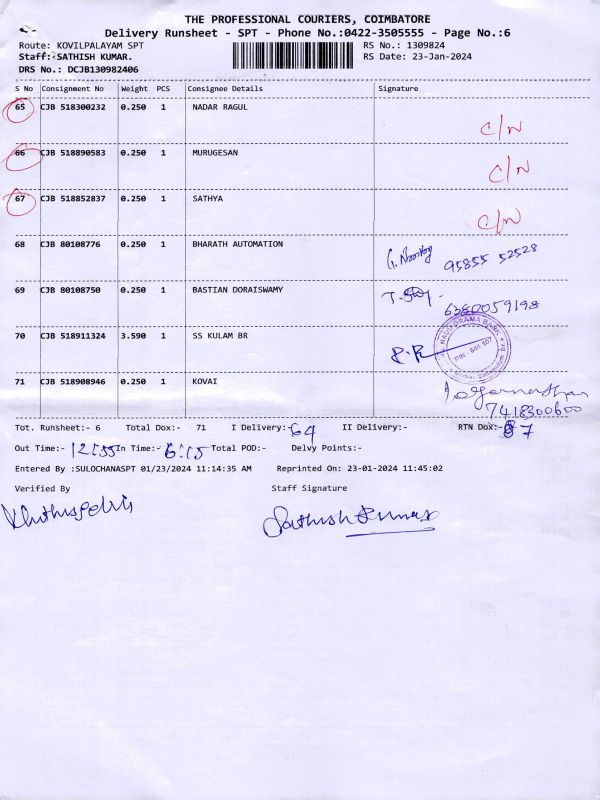 THE PROFESSIONAL COURIERS, COIMBATORE
Delivery Runsheet - SPT - Phone No.:0422-3505555 - Page No.:6
Route: KOVILPALAYAM SPT RS No.: 1309824
Staff: SATHISH KUMAR. RS Date: 23-Jan-2024
DRS No.: DCJB130982406
S No Consignment No Weight PCS Consignee Details Signature
65 CJB 518300232 0.250 1 NADAR RAGUL
C/N
66 CJB 518890583 0.250 1 MURUGESAN
C/N
67 CJB 518852837 0.250 1 SATHYA
C/N
68 CJB 80108776 0.250 1 BHARATH AUTOMATION
95855 52528
69 CJB 80108750 0.250 1 BASTIAN DORAISWAMY
6380059198
70 CJB 518911324 3.590 1 SS KULAM BR
71 CJB 518908946 0.250 1 KOVAI
7418300600
Tot. Runsheet:- 6 Total Dox:- 71 I Delivery:- 64 II Delivery:- RTN Dox:- 7
Out Time:- 12:55 In Time:- 6:15 Total POD:- Delvy Points:-
Entered By :SULOCHANASPT 01/23/2024 11:14:35 AM Reprinted On: 23-01-2024 11:45:02
Verified By Staff Signature
Sathish Kumar